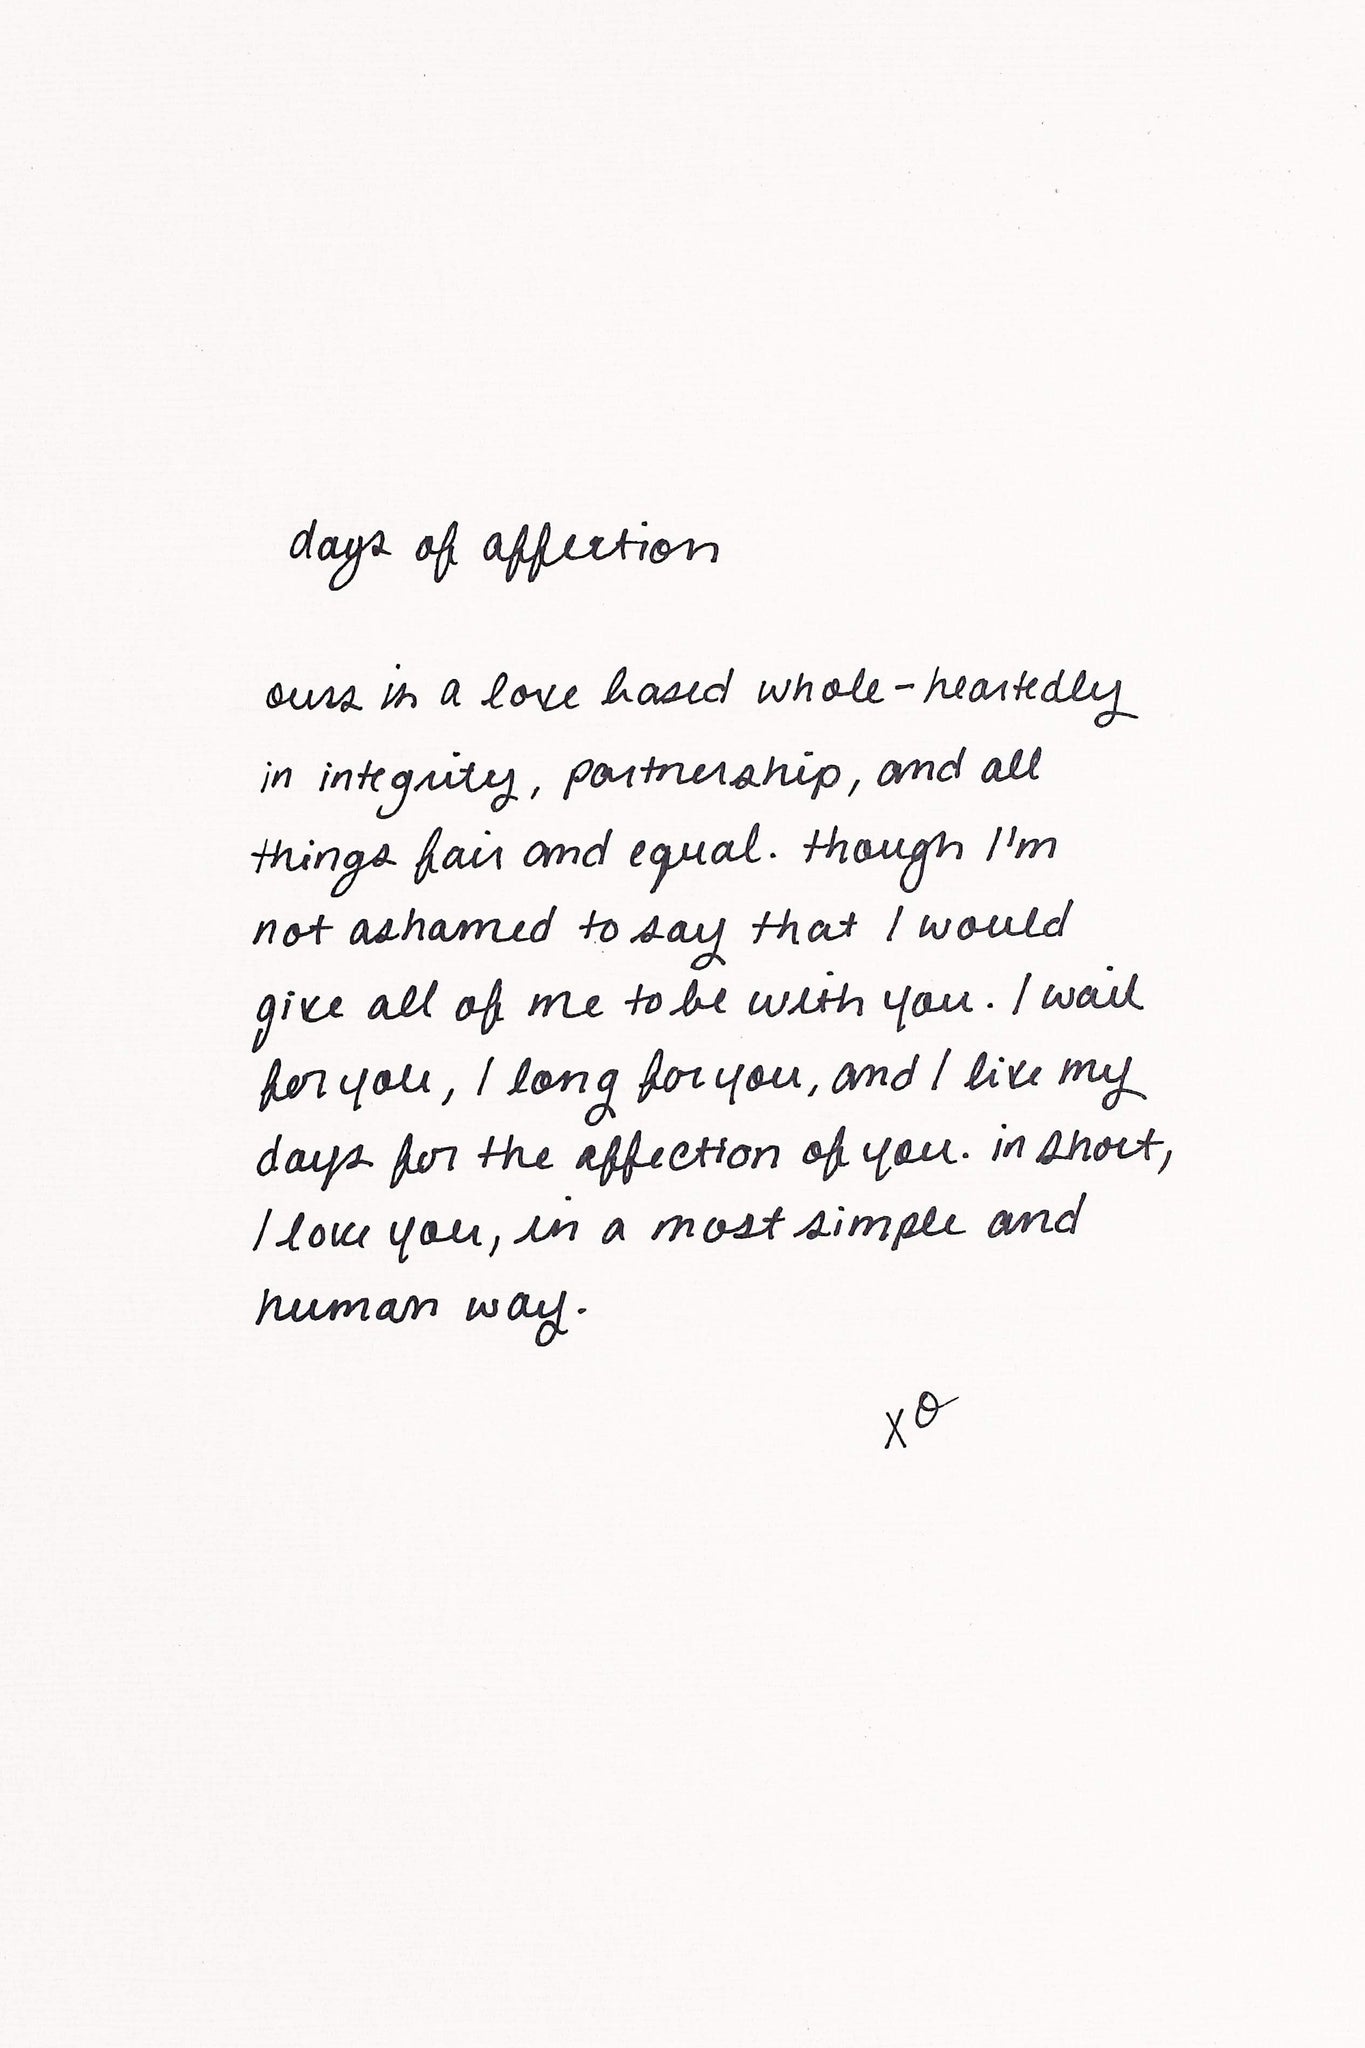 days of affection
ours is a love based whole-heartedly
in integrity, partnership, and all
things fair and equal. though I'm
not ashamed to say that I would
give all of me to be with you. I wait
for you, I long for you, and I live my
days for the affection of you. in short,
I love you, in a most simple and
human way.
xo